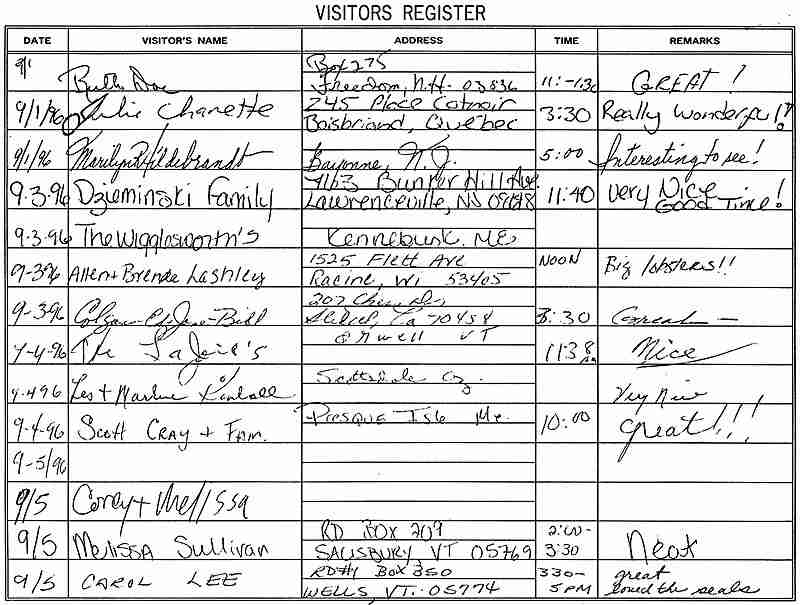 VISITORS REGISTER
DATE VISITOR'S NAME ADDRESS TIME REMARKS
9/1 Ruth Box 275 11:-1:30 GREAT!
Freedom, N.H. 03836
9/1/96 Julie Charette 245 Place Cotnoir 3:30 Really Wonderful!!
Boisbriand, Quebec
9/1/96 Marilyn R Hildebrandt Bayonne, N.J. 5:00 Interesting to see!
9-3-96 Dzieminski Family Bunker Hill Ave. 11:40 very Nice
Lawrenceville, NJ GOOD Time!
9-3-96 The Wigglesworth's Kennebunk, ME
9-3-96 Allen + Brenda Lashley 1525 Flett Ave NOON Big lobsters!!
Racine, Wi 53405
9-3-96 Bill 207 3:30 Great —
Slidell, La 70458
9-4-96 The VT 11:38 Nice
9-4-96 Les + Marlene Kimball Scottsdale Az. Very Nice
9-4-96 Scott Cray + Fam. Presque Isle Me. 10:00 great!!!
9-5/96
9/5 Corey + Melissa
9/5 Melissa Sullivan RD Box 209 2:00- Neat
SALISBURY VT 05769 3:30
9/5 CAROL LEE RD#1 Box 350 3:30- great
WELLS, VT. 05774 5 PM loved the seals